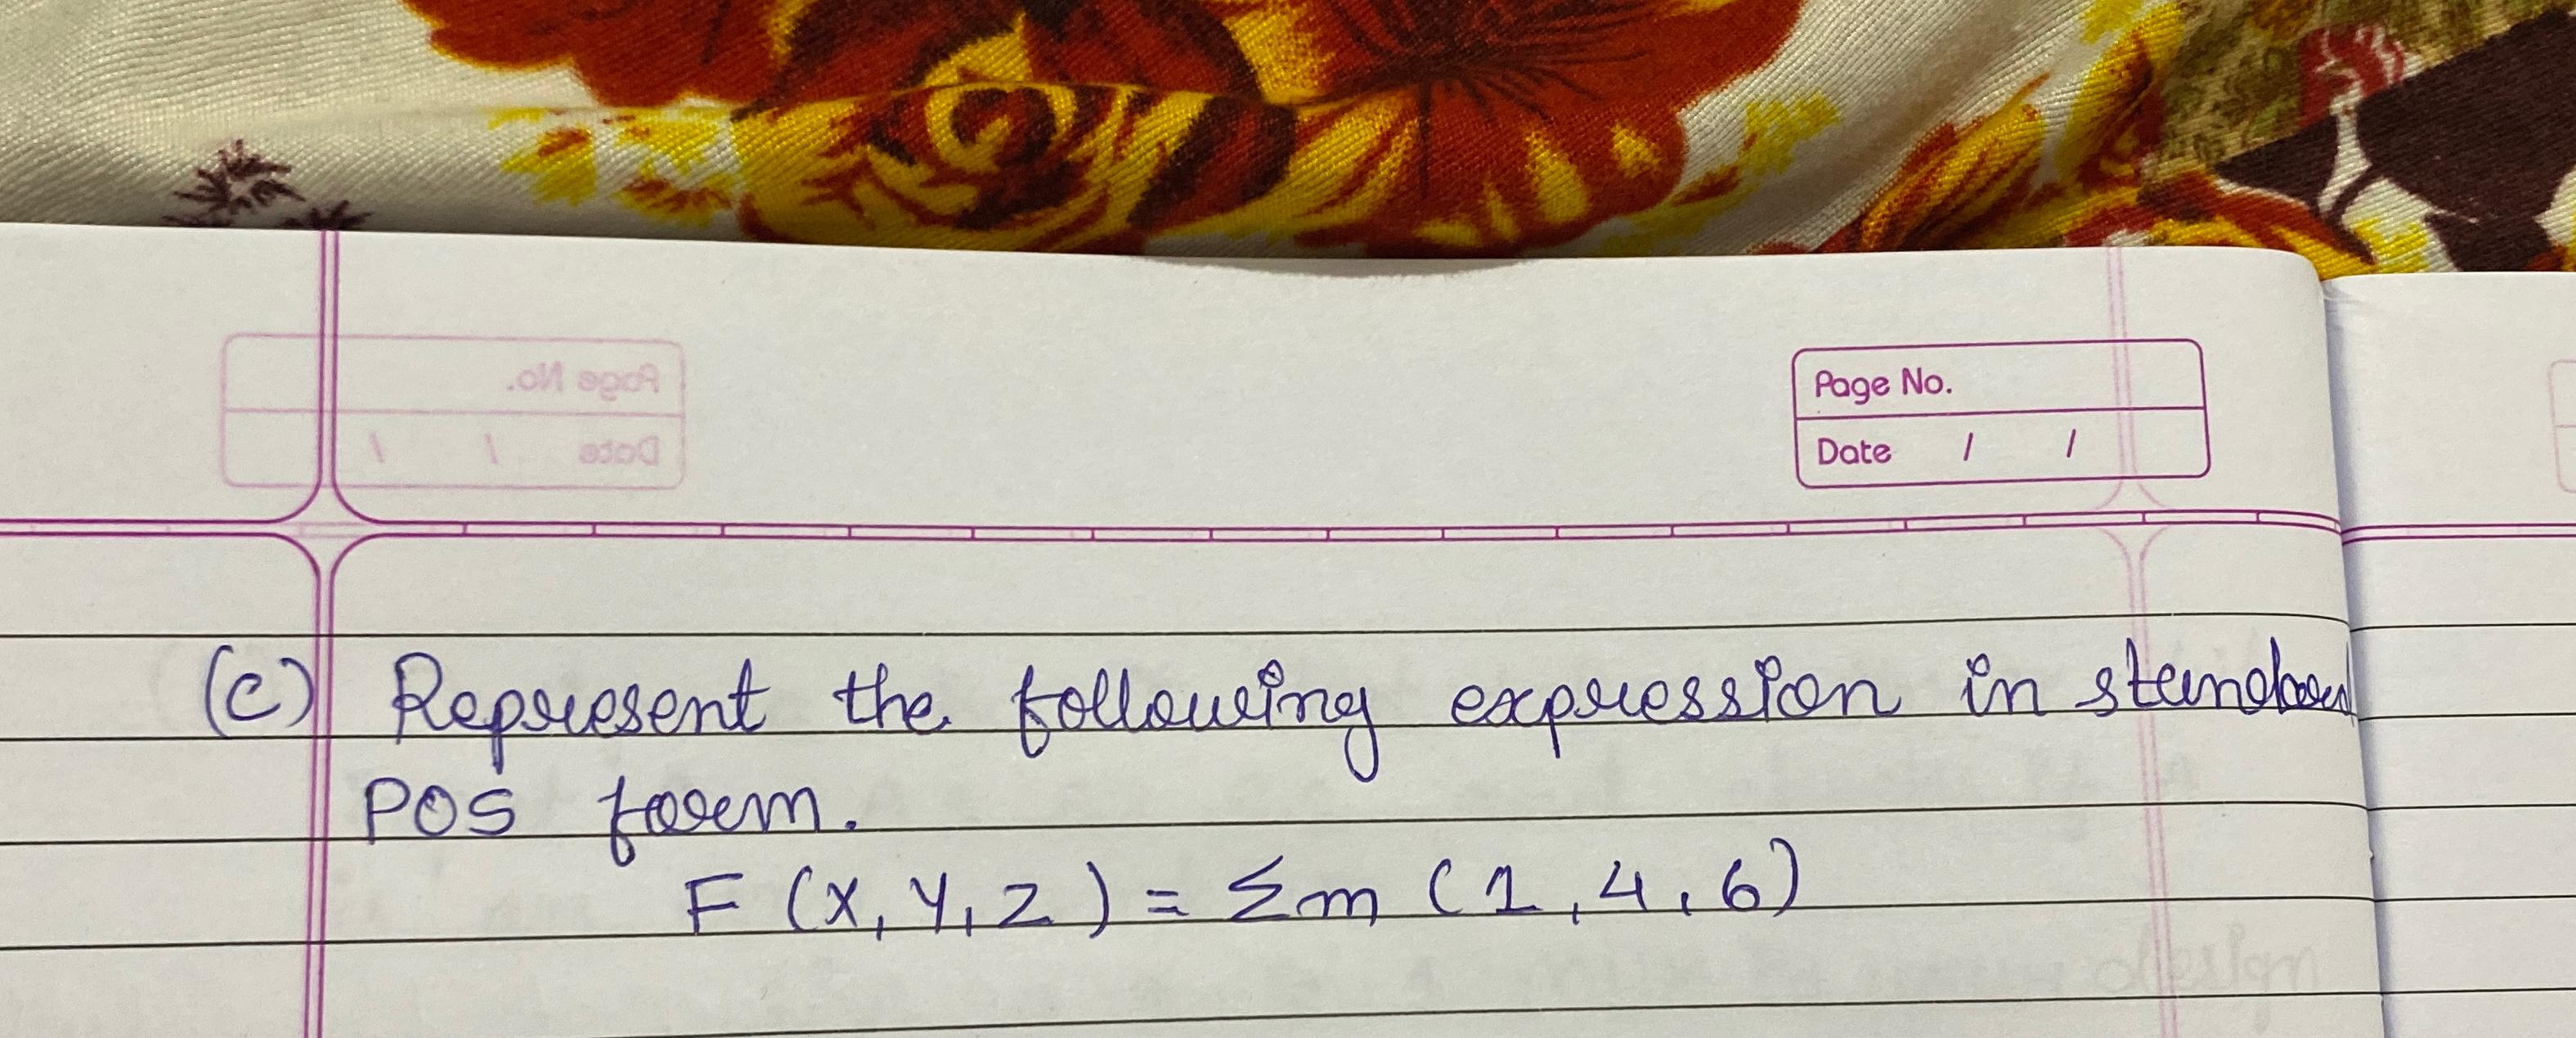 Page No.
Date / /
(c) Represent the following expression in standard
POS form.
F (X, Y, Z) = Σm (1, 4, 6)